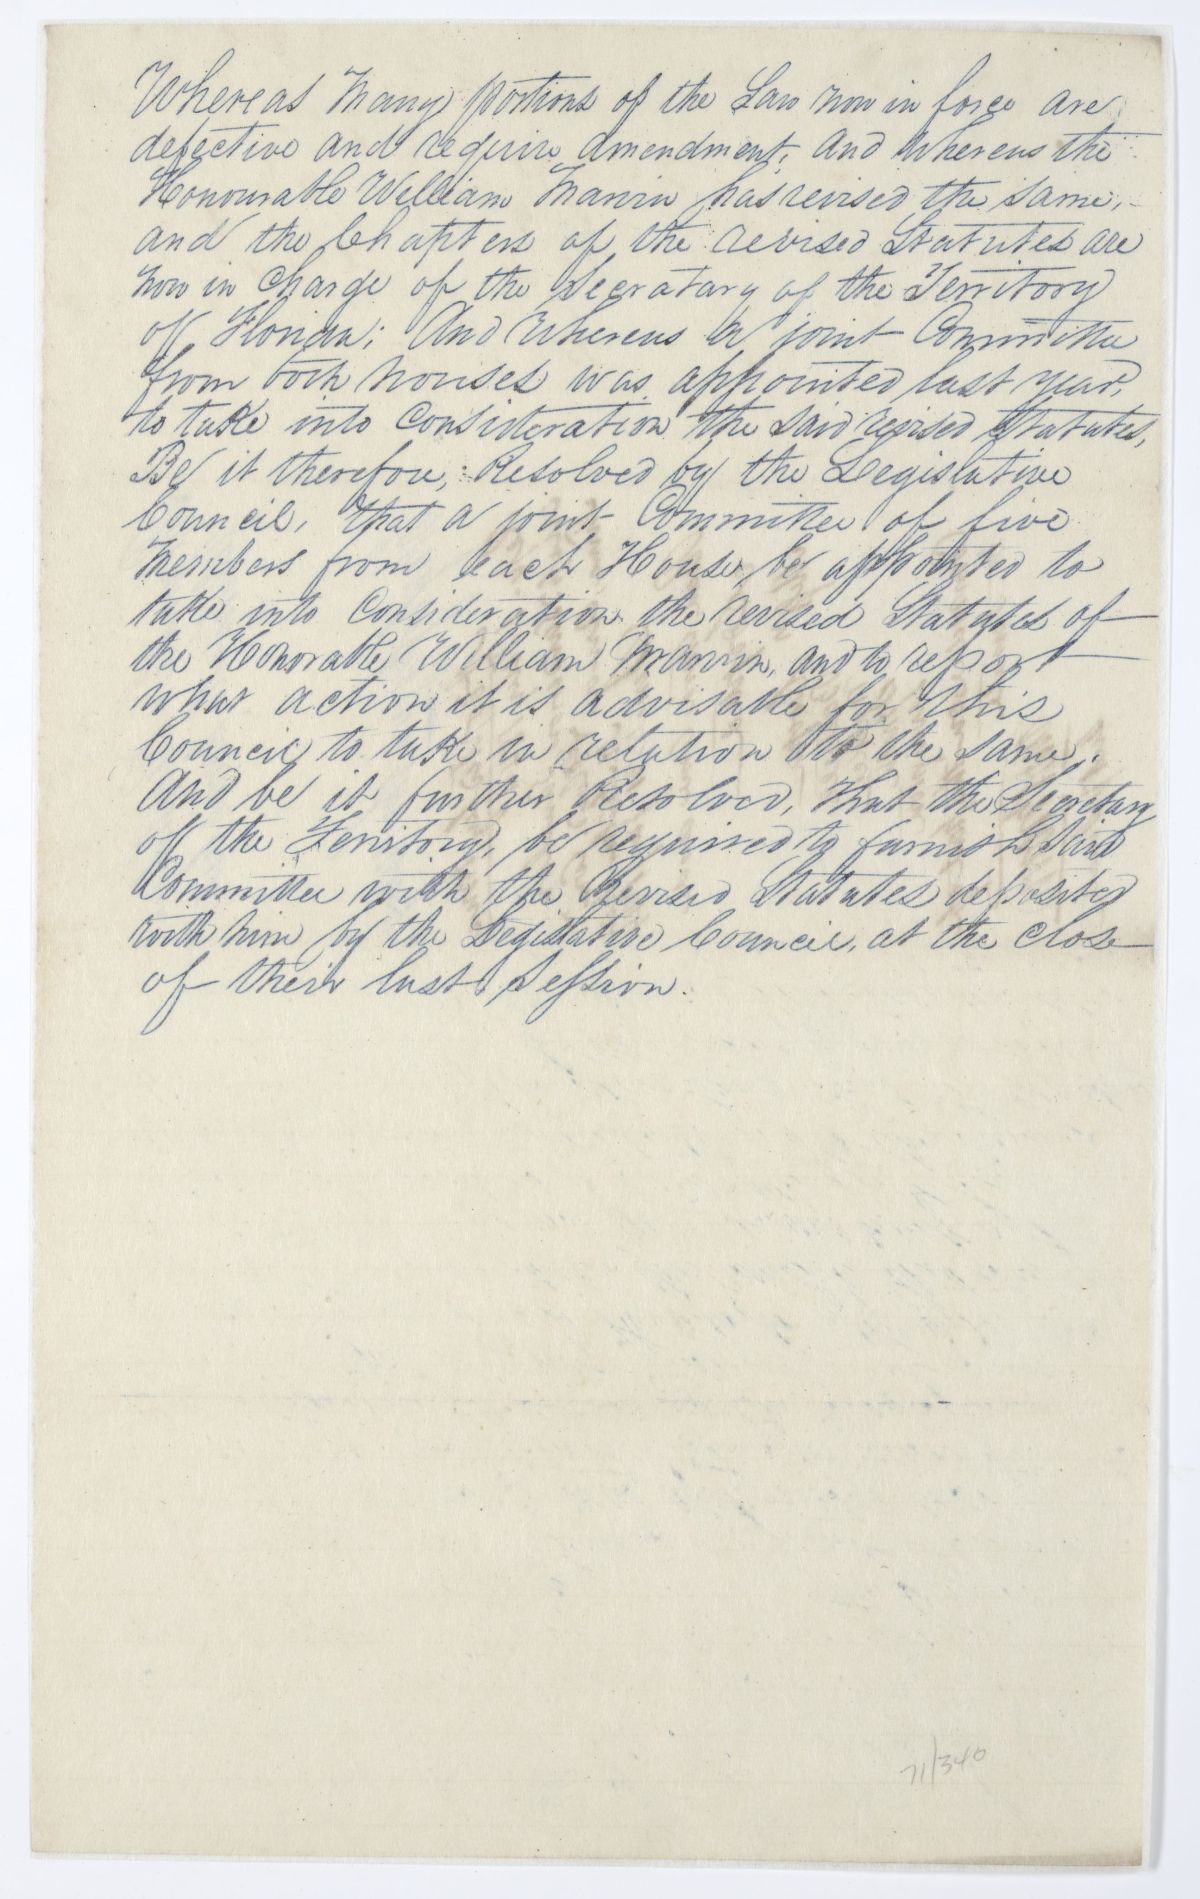 Whereas Many portions of the Law now in force are
defective and require amendment, and whereas the
Honourable William Marvin has revised the same,
and the Chapters of the revised Statutes are
now in charge of the Secratary of the Territory
of Florida; And whereas a joint Committee
from both houses was appointed last year,
to take into consideration the said revised Statutes,
Be it therefore, Resolved by the Legislative
Council, that a joint Committee of five
Members from each House, be appointed to
take into Consideration the revised Statutes of
the Honorable William Marvin, and to report
what action it is advisable for this
Council to take in relation to the same.
And be it further Resolved, that the Secretary
of the Territory, be required to furnish said
Committee with the Revised Statutes deposited
with him by the Legislative Council, at the close
of their last Session.
71/340